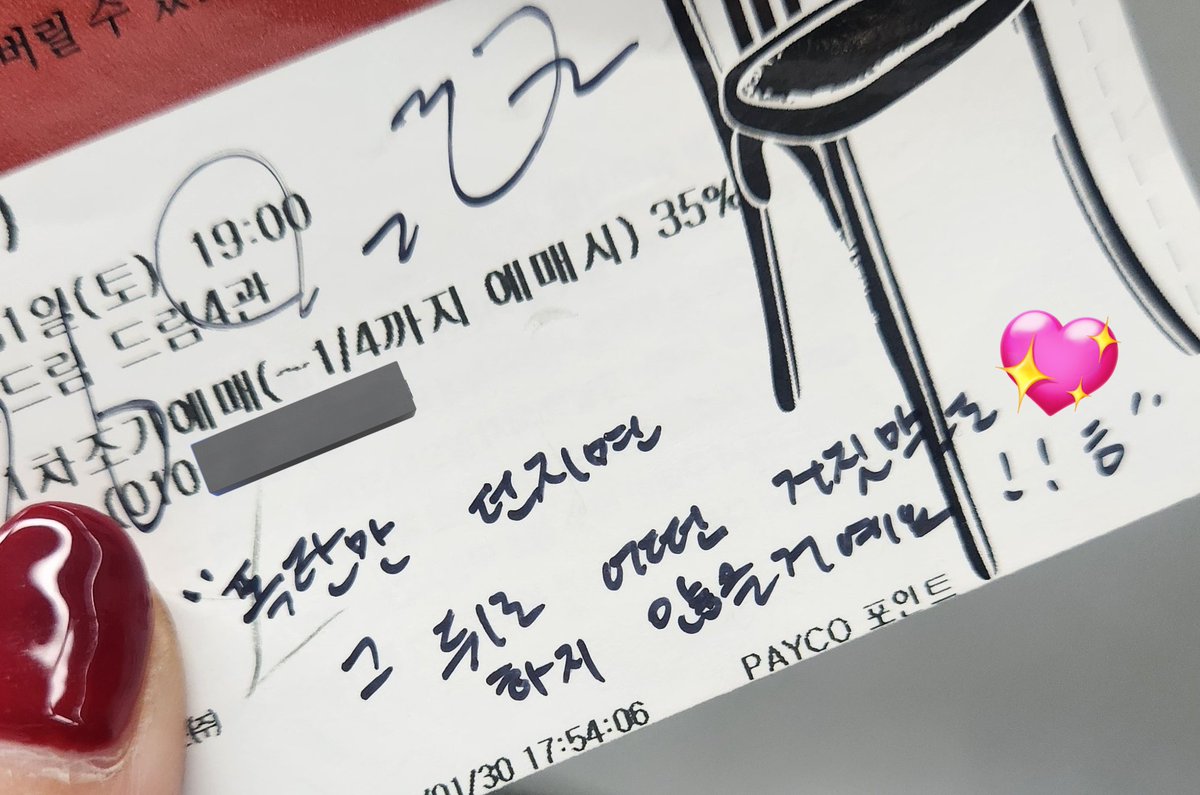 버릴 수 있
1일(토) 19:00
드림 드림4관
차조기예매(~1/4까지 예매시) 35%
"폭탄만 던지면
그 뒤로 어떤 거짓말도
하지 않을거예요!!" 등
PAYCO 포인트
(주)
/01/30 17:54:06